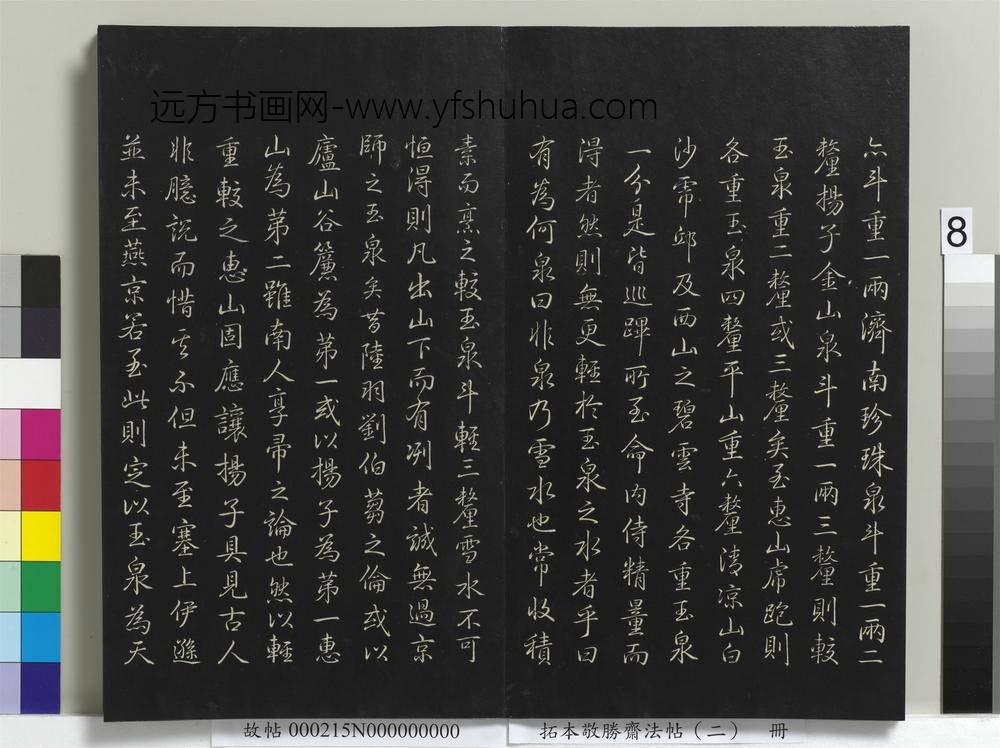 远方书画网-www.yfshuhua.com
亦斗重一兩濟南珍珠泉斗重一兩二
釐揚子金山泉斗重一兩三釐則較
玉泉重二釐或三釐矣至惠山虎跑則
各重玉泉四釐平山重六釐清涼山白
沙虎邱及西山之碧雲寺各重玉泉
一分是皆巡蹕所至命內侍精量而
得者然則無更輕於玉泉之水者乎曰
有為何泉曰非泉乃雪水也常收積
素而烹之較玉泉斗輕三釐雪水不可
恒得則凡出山下而有冽者誠無過京
師之玉泉矣昔陸羽劉伯芻之倫或以
廬山谷簾為第一或以揚子為第一惠
山為第二雖南人享帚之論也然以輕
重較之惠山固應讓揚子具見古人
非臆說而惜其不但未至塞上伊遜
並未至燕京若至此則定以玉泉為天
8
故帖 000215N000000000
拓本敬勝齋法帖（二） 冊